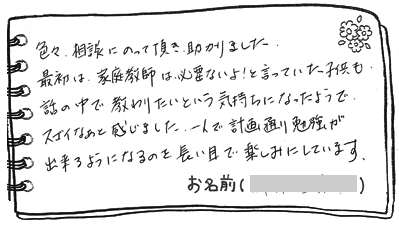 色々、相談にのって頂き、助かりました。
最初は、家庭教師は必要ないよ！と言っていた子供も、
話の中で教わりたいという気持ちになったようで、
スゴイなぁと感じました。一人で計画通り勉強が
出来るようになるのを長い目で楽しみにしています。
お名前（　　　）